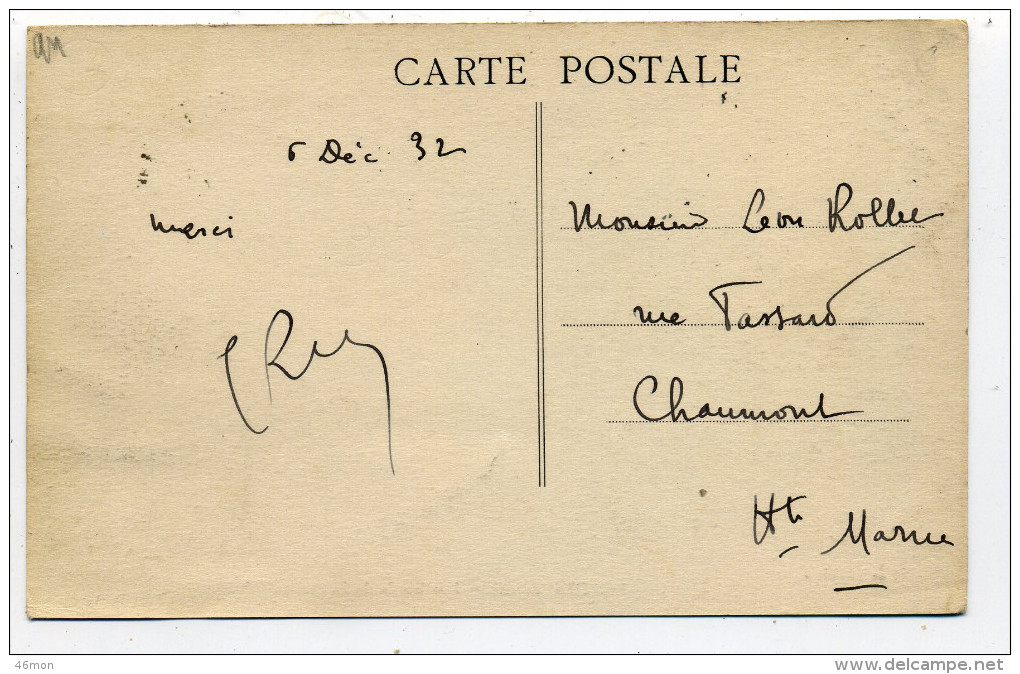 CARTE POSTALE
6 Déc 32
merci
Monsieur Leon Rollet
rue Tassard
Chaumont
Hte Marne
46mon
www.delcampe.net